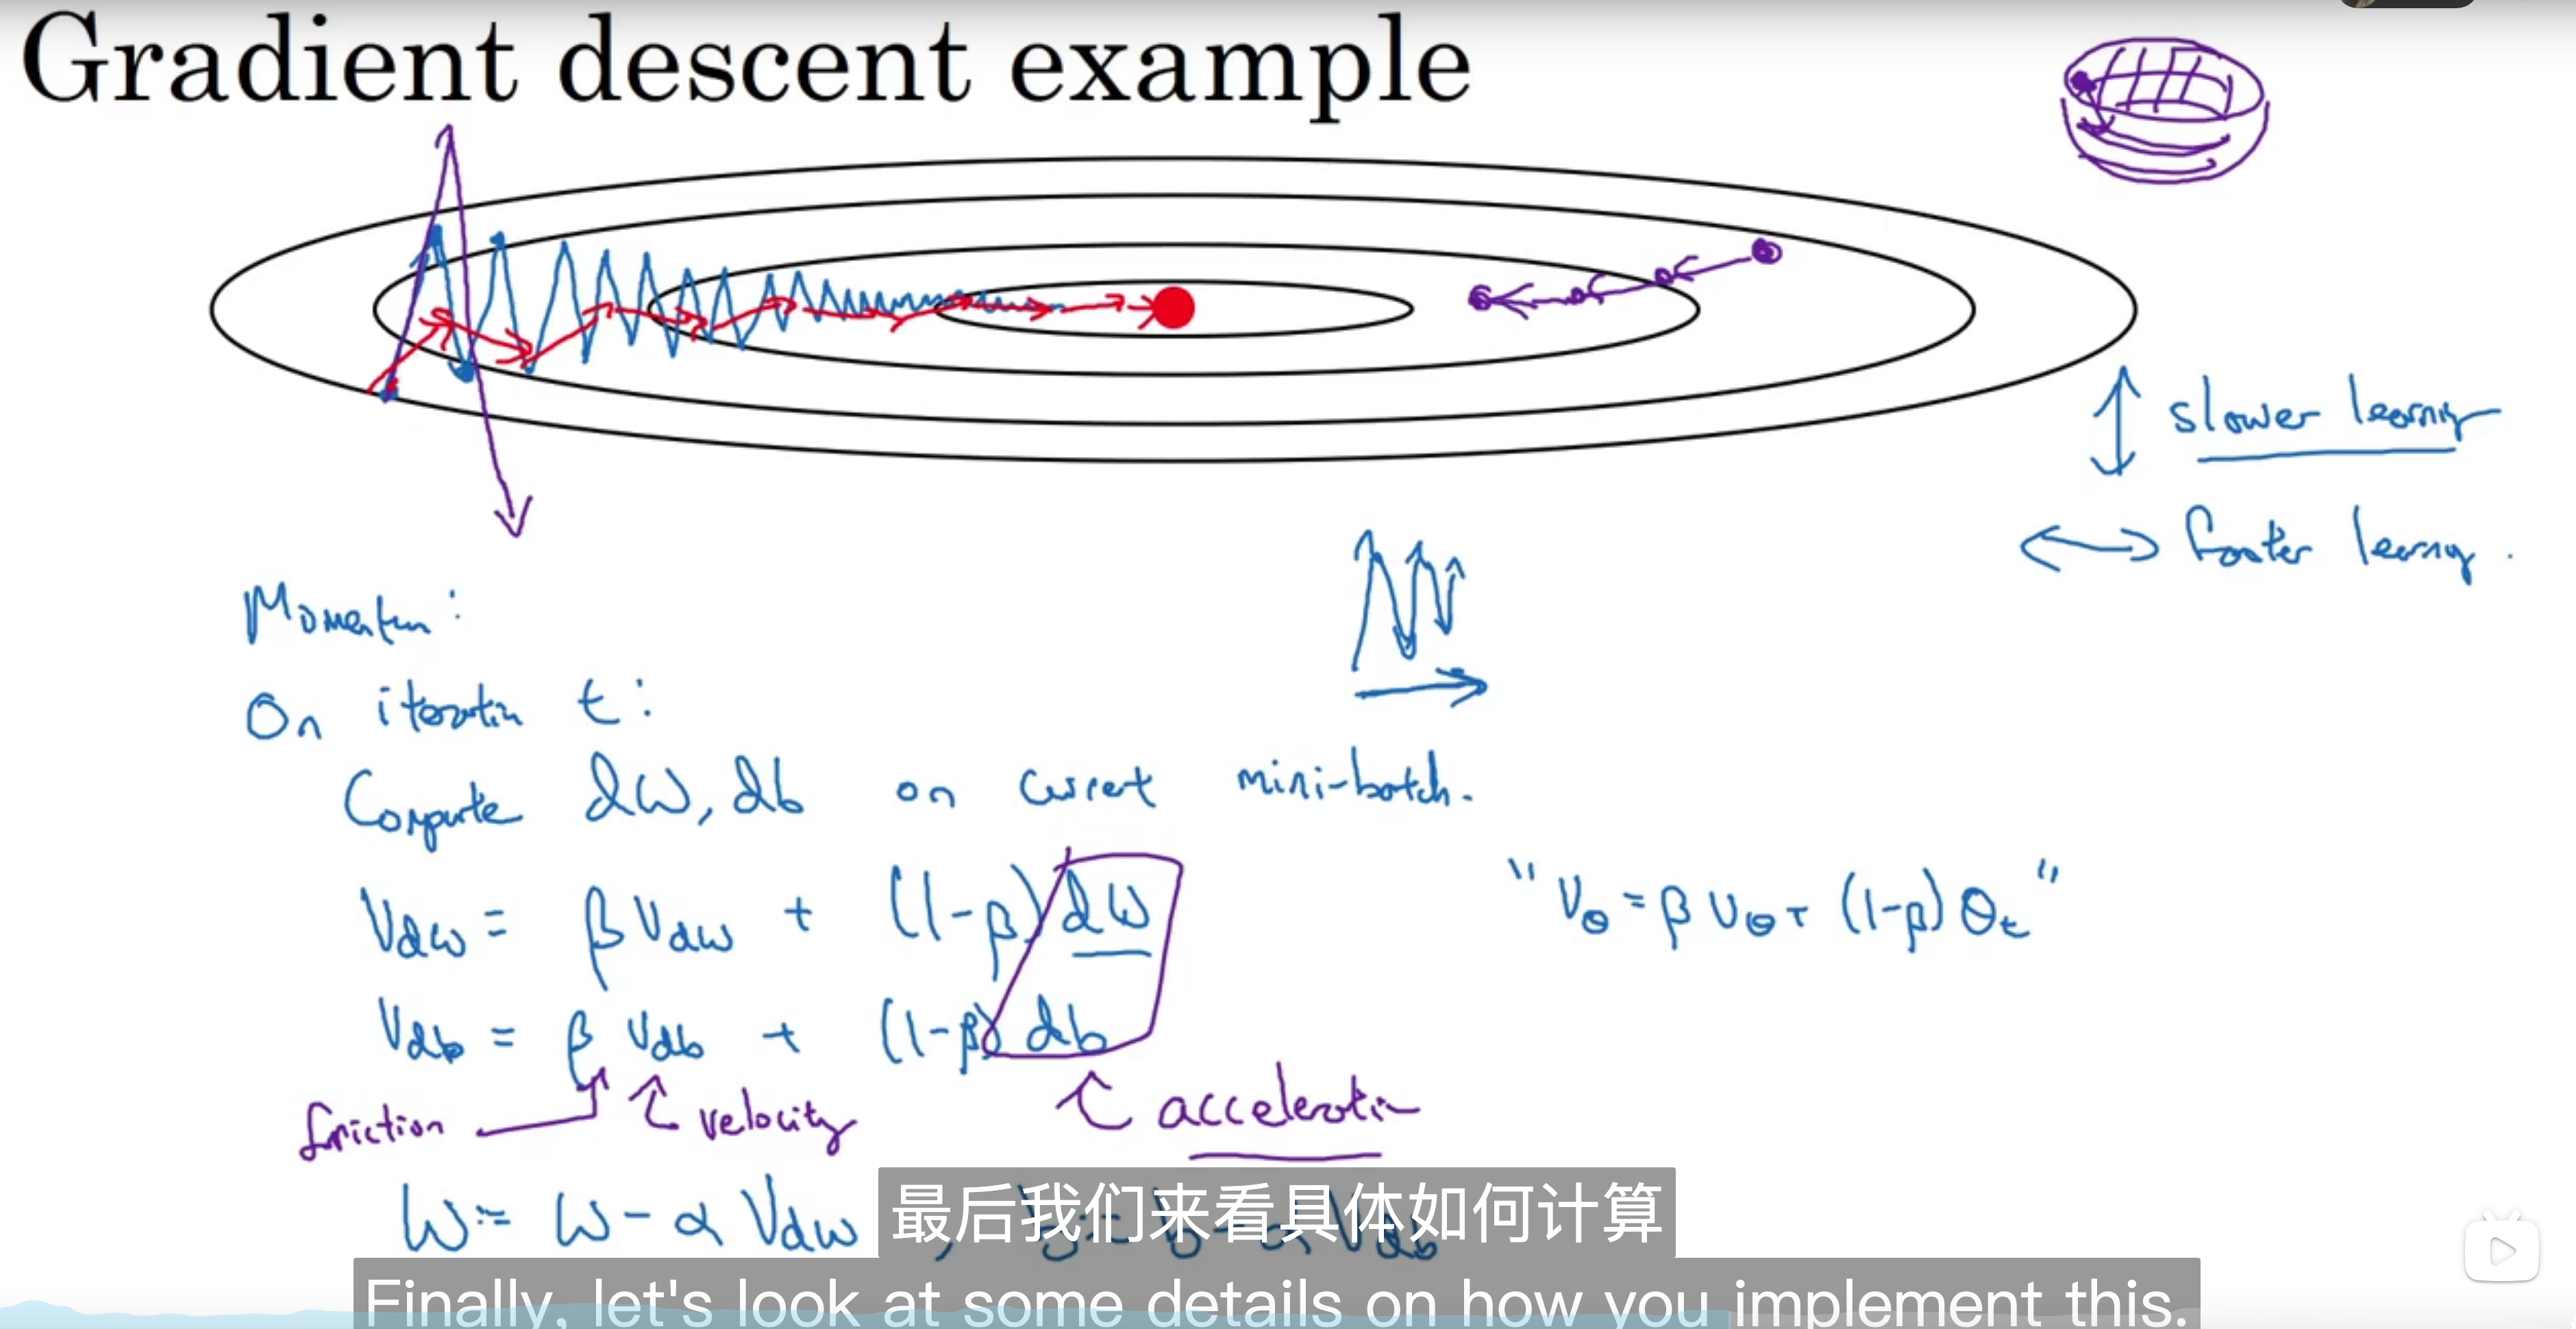 Gradient descent example
slower learning
faster learning.
Momentum:
On iteration t:
Compute dW, db on current mini-batch.
Vdw = βVdw + (1-β)dW
"Vθ = βVθ + (1-β)θt"
Vdb = βVdb + (1-β)db
friction velocity acceleration
W:= W-αVdw, b:= b-αVdb
最后我们来看具体如何计算
Finally, let's look at some details on how you implement this.